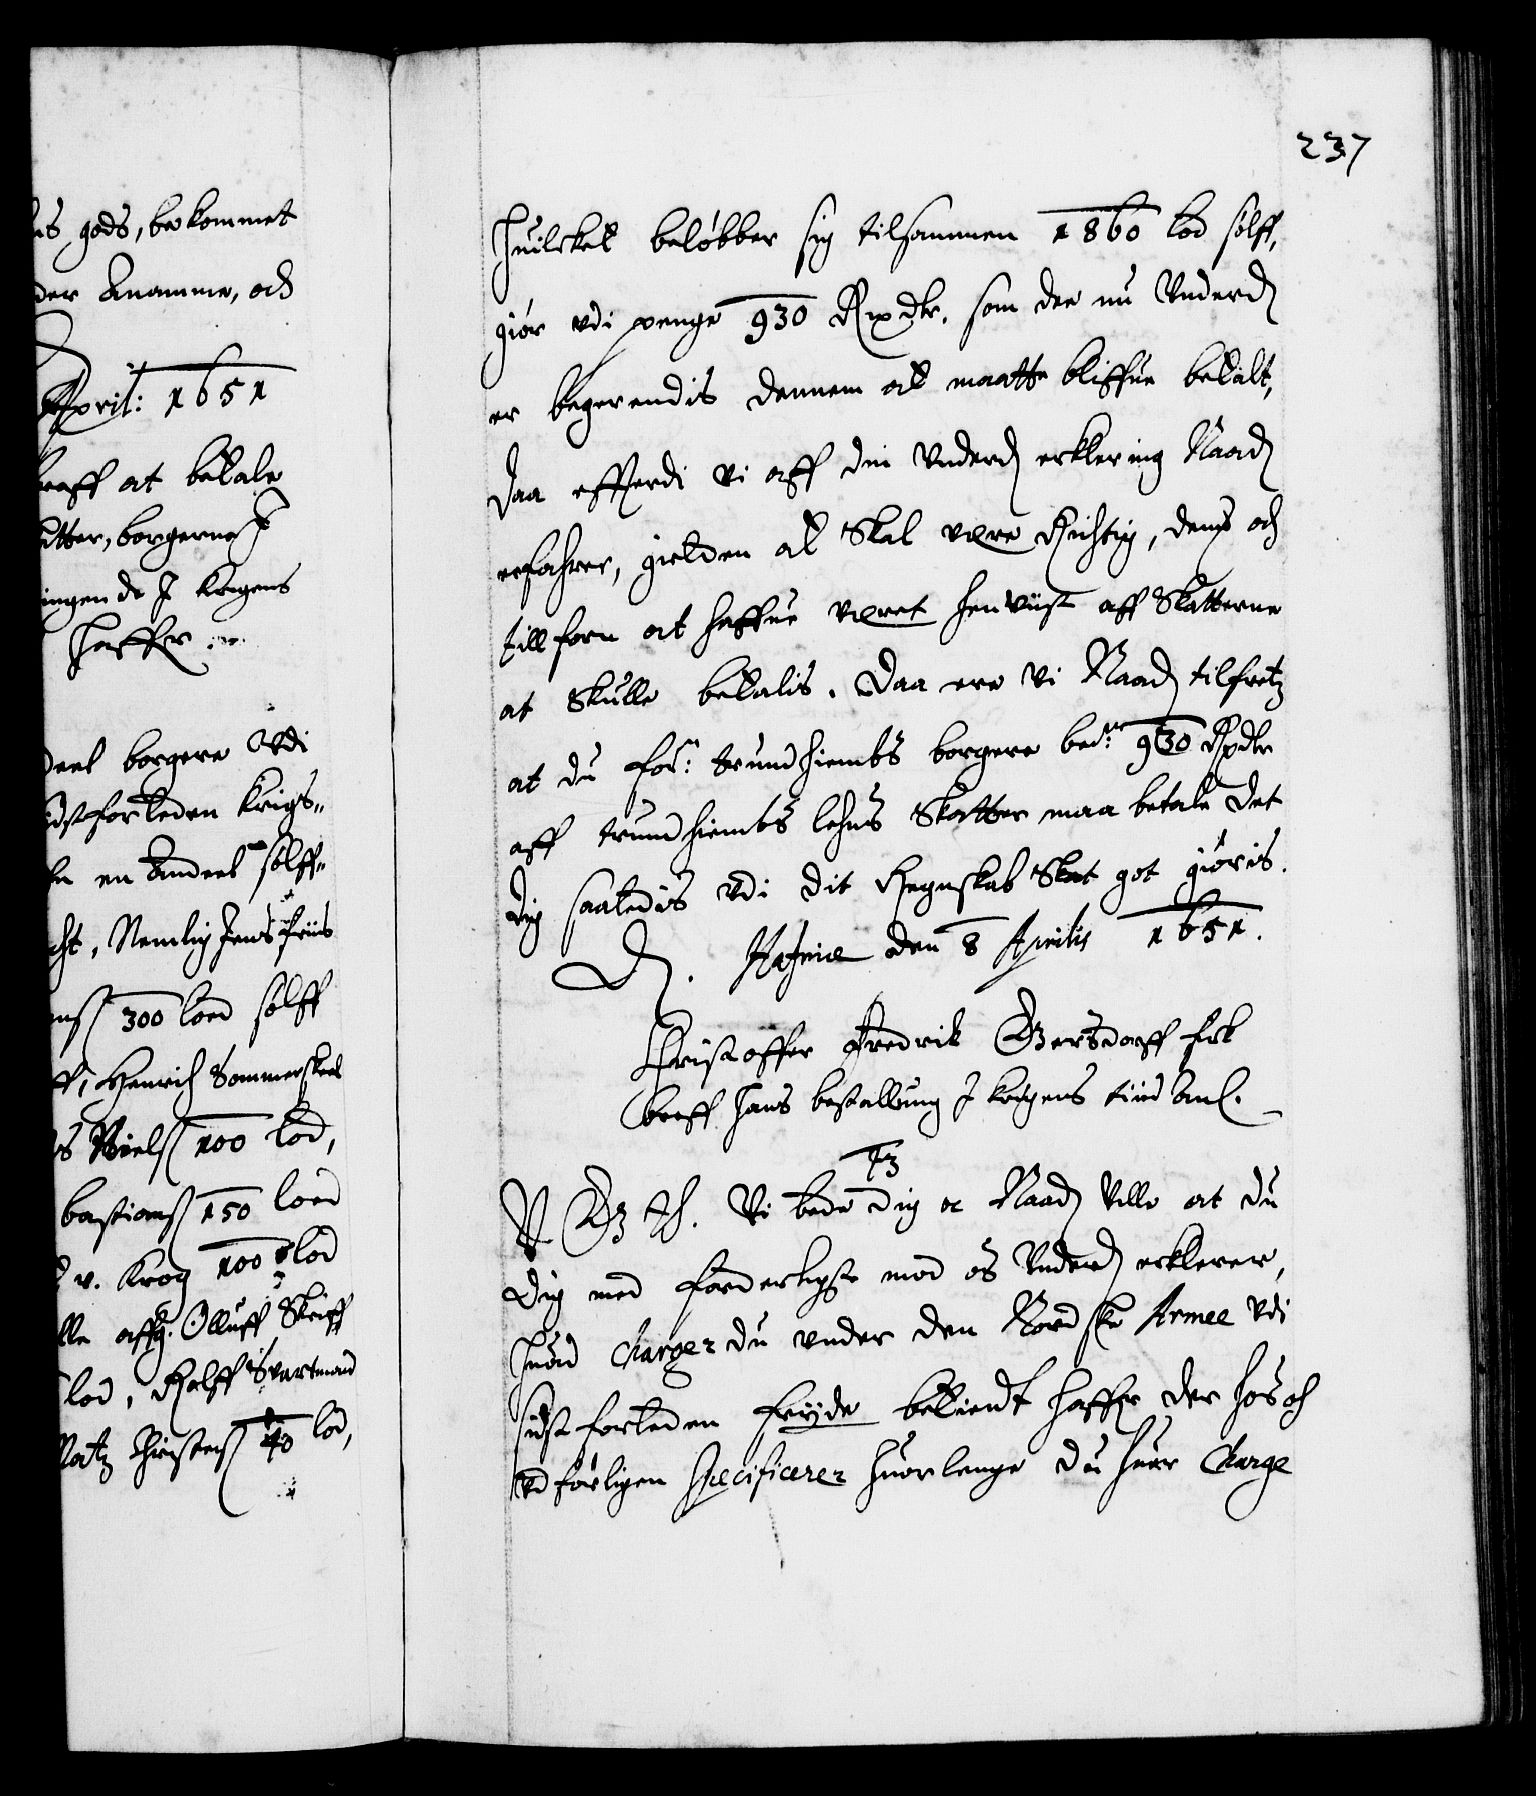 237
us gods, bekommet
der Anamme, och
April: 1651
breff at betale
utter, borgerne J
ingende J Krigens
Haffr
deel borgere Vdi
idstforleden Krigs-
en Andeel sølff-
cht, Nemlig Jens Friis
300 loed sølff
ff, Henrich Sommerskeel
Nielsß 100 lod,
bastiansß 150 loed
v. Krog 100 lod
lle affg. Olluff Skriff
lod, Rolff Svartmand
Matz Christensß 40 lod,
Huilcket beløbber sig tilsammen 1860 lod sølff,
giør vdi penge 930 Rixdlr. som dee nu Vnderd
er begerendis dennem at maatte bliffue betalt,
Daa effterdi vi aff din Vnderd erklering Naad
erfahrer, gielden at Skal være Richtig, dennß och
tillforn at haffue været henviist aff Skatterne
at Skulle betalis. Daa ere Vi Naad tilfretz
at du for: trundhiembs borgere bede: 930 Rixdlr
aff trundhiembs lehns Skatter maa betale Det
Dig saaledis vdi dit Regnskab Skal got giøris.
D. Hafniæ den 8 Aprilis 1651.
Christoffer Fredrik Gersdorff fik
breff hans bestalling J krigens tiid Anl.
T3
V G T. Vi bede Dig oc Naad Ville at du
Dig med forderligste mod os Vnderd erklerer,
huad Charger du vnder den Nordske Armee vdi
sidst forleden Feyde betient haffr der hos oc
vdførligen Specificerer huorlenge du huer Charge